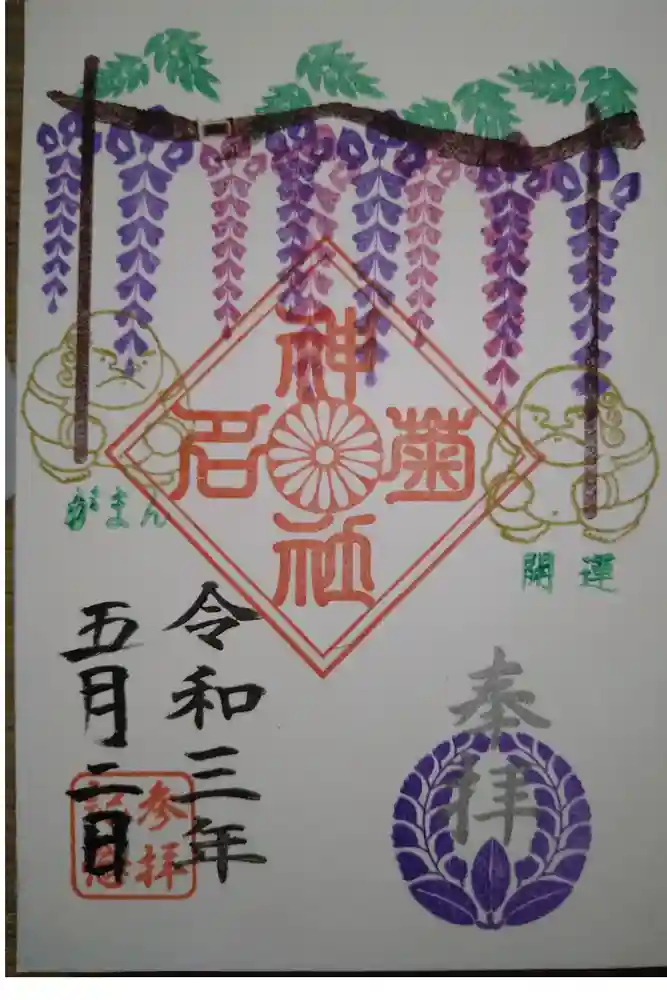 奉拝
菊名神社
開運
がまん
令和三年
五月二日
参拝
記念